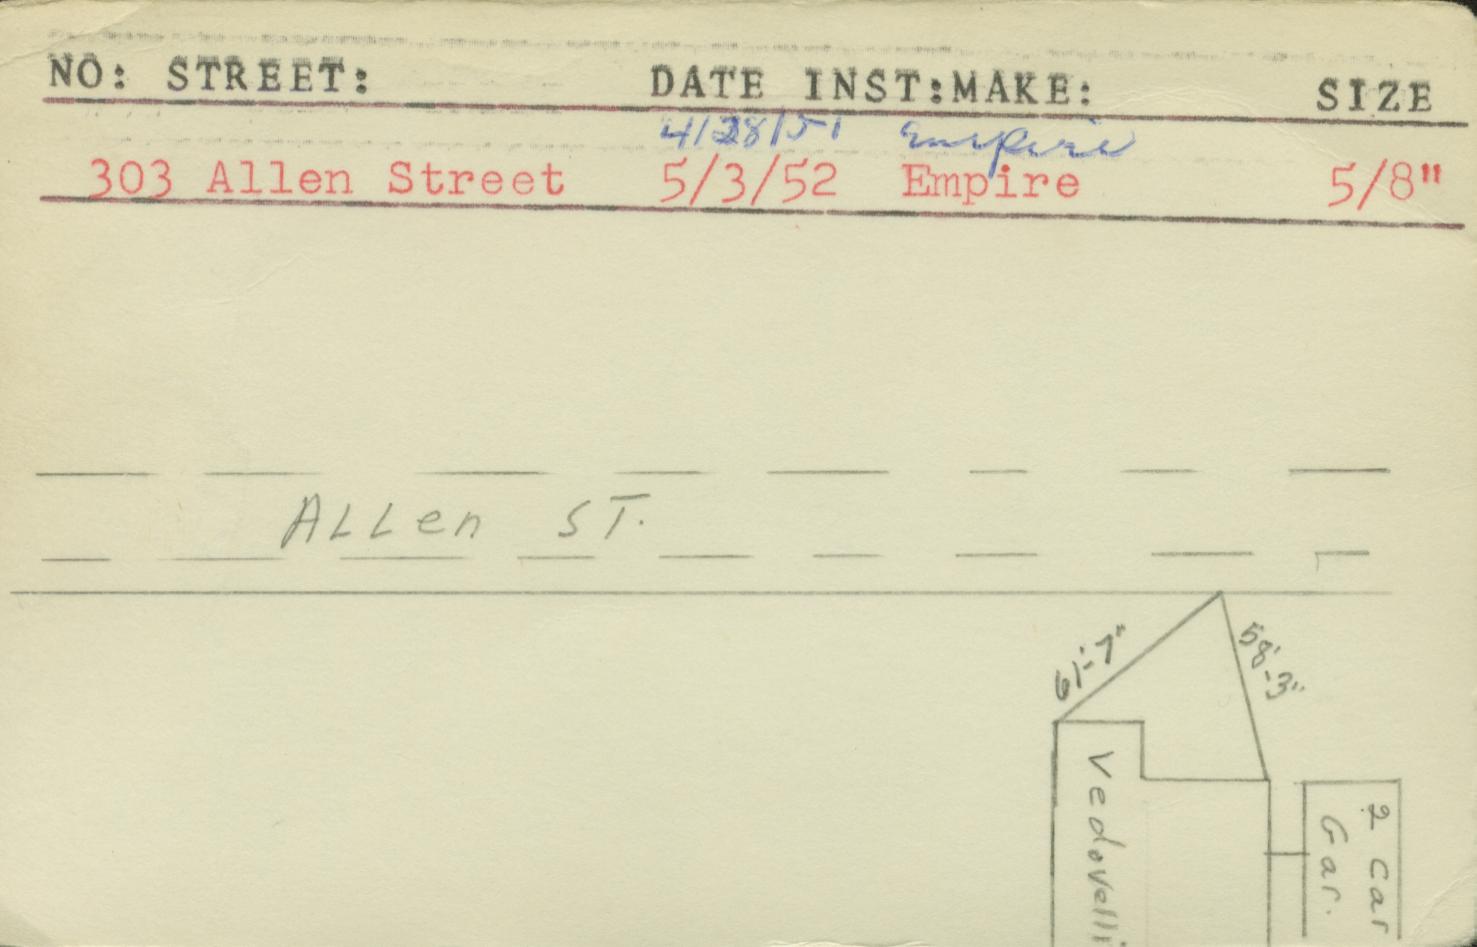 NO: STREET: DATE INST: MAKE: SIZE
4/28/51 Empire
303 Allen Street 5/3/52 Empire 5/8"
ALLen ST.
61'-7"
58'-3"
Vedovelli
2 Car
Gar.